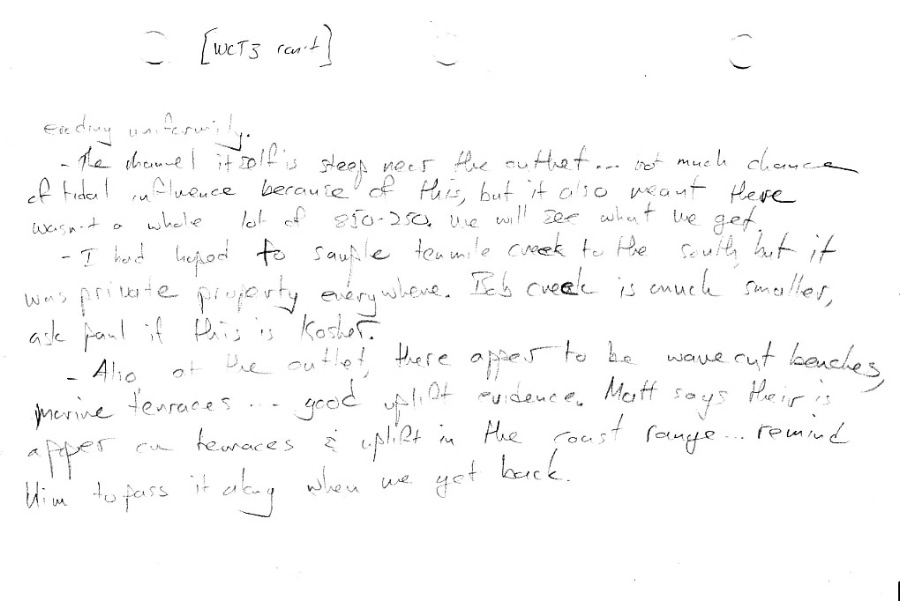 [WCT3 con't]
eroding uniformily.
- The channel itself is steep near the outlet... not much chance
of tidal influence because of this, but it also meant there
wasn't a whole lot of 850-250. We will see what we get.
- I had hoped to sample tenmile creek to the south, but it
was private property everywhere. Bob creek is much smaller,
ask paul if this is Kosher.
- Also, at the outlet, there apper to be wave cut benches,
marine terraces ... good uplift evidence. Matt says their is
apper on terraces & uplift in the coast range... remind
Him to pass it along when we get back.